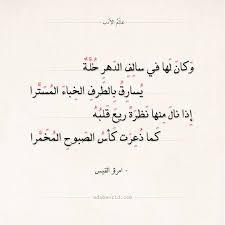 عالَمُ الأدب
وَكانَ لَها في سالِفِ الدَهرِ خُلَّةٌ
يُسارِقُ بِالطَرفِ الخِباءَ المُسَتَّرا
إِذا نالَ مِنها نَظرَةً ريعَ قَلبُهُ
كَما ذُعِرَت كَأسُ الصَبوحِ المُخَمَّرا
- امرؤ القيس
adabworld.com